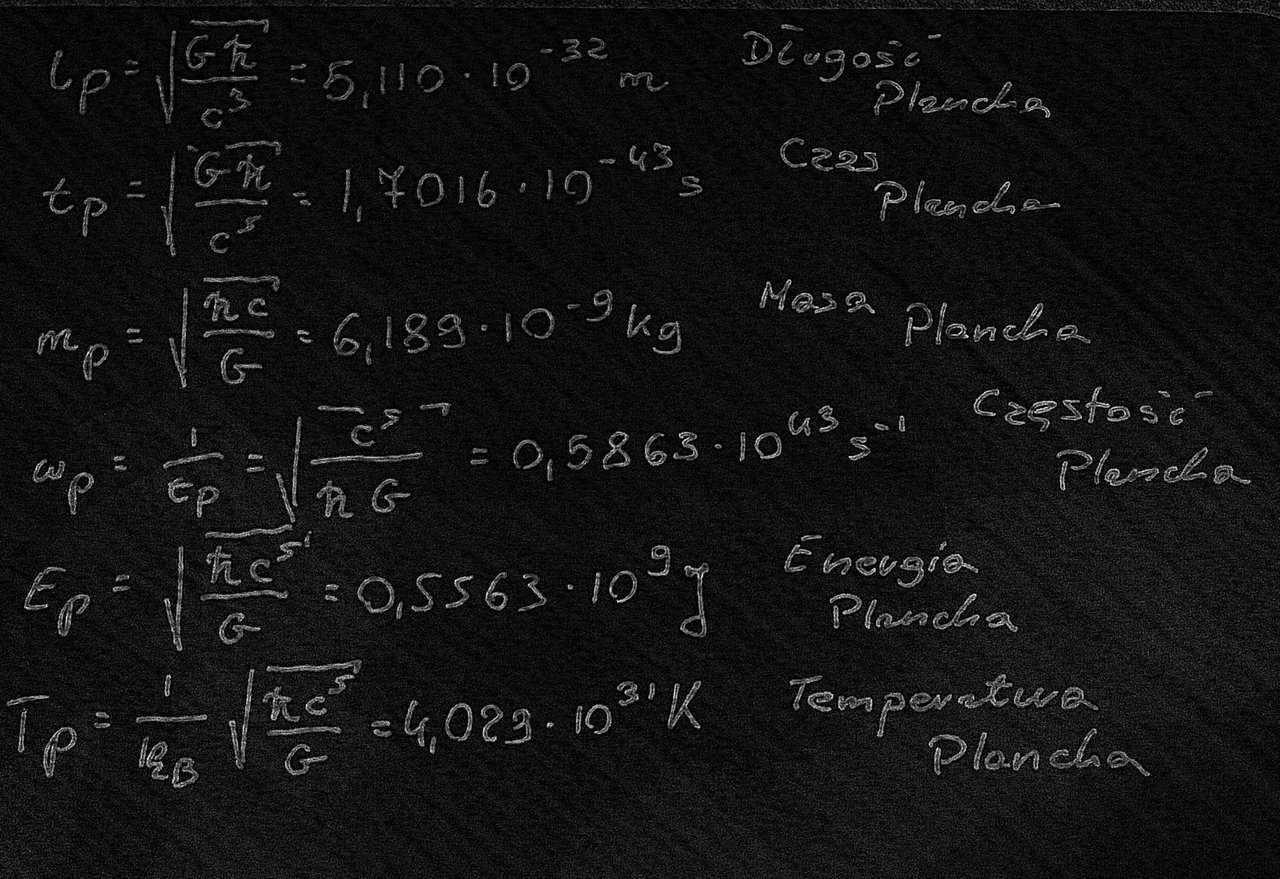 lₚ = √(Għ/c³) = 5,110 · 10⁻³² m Długość Plancka
tₚ = √(Għ/c⁵) = 1,7016 · 10⁻⁴³ s Czas Plancka
mₚ = √(ħc/G) = 6,189 · 10⁻⁹ kg Masa Plancka
ωₚ = 1/tₚ = √(c⁵/ħG) = 0,5863 · 10⁴³ s⁻¹ Częstość Plancka
Eₚ = √(ħc⁵/G) = 0,5563 · 10⁹ J Energia Plancka
Tₚ = 1/k_B √(ħc⁵/G) = 4,029 · 10³¹ K Temperatura Plancka